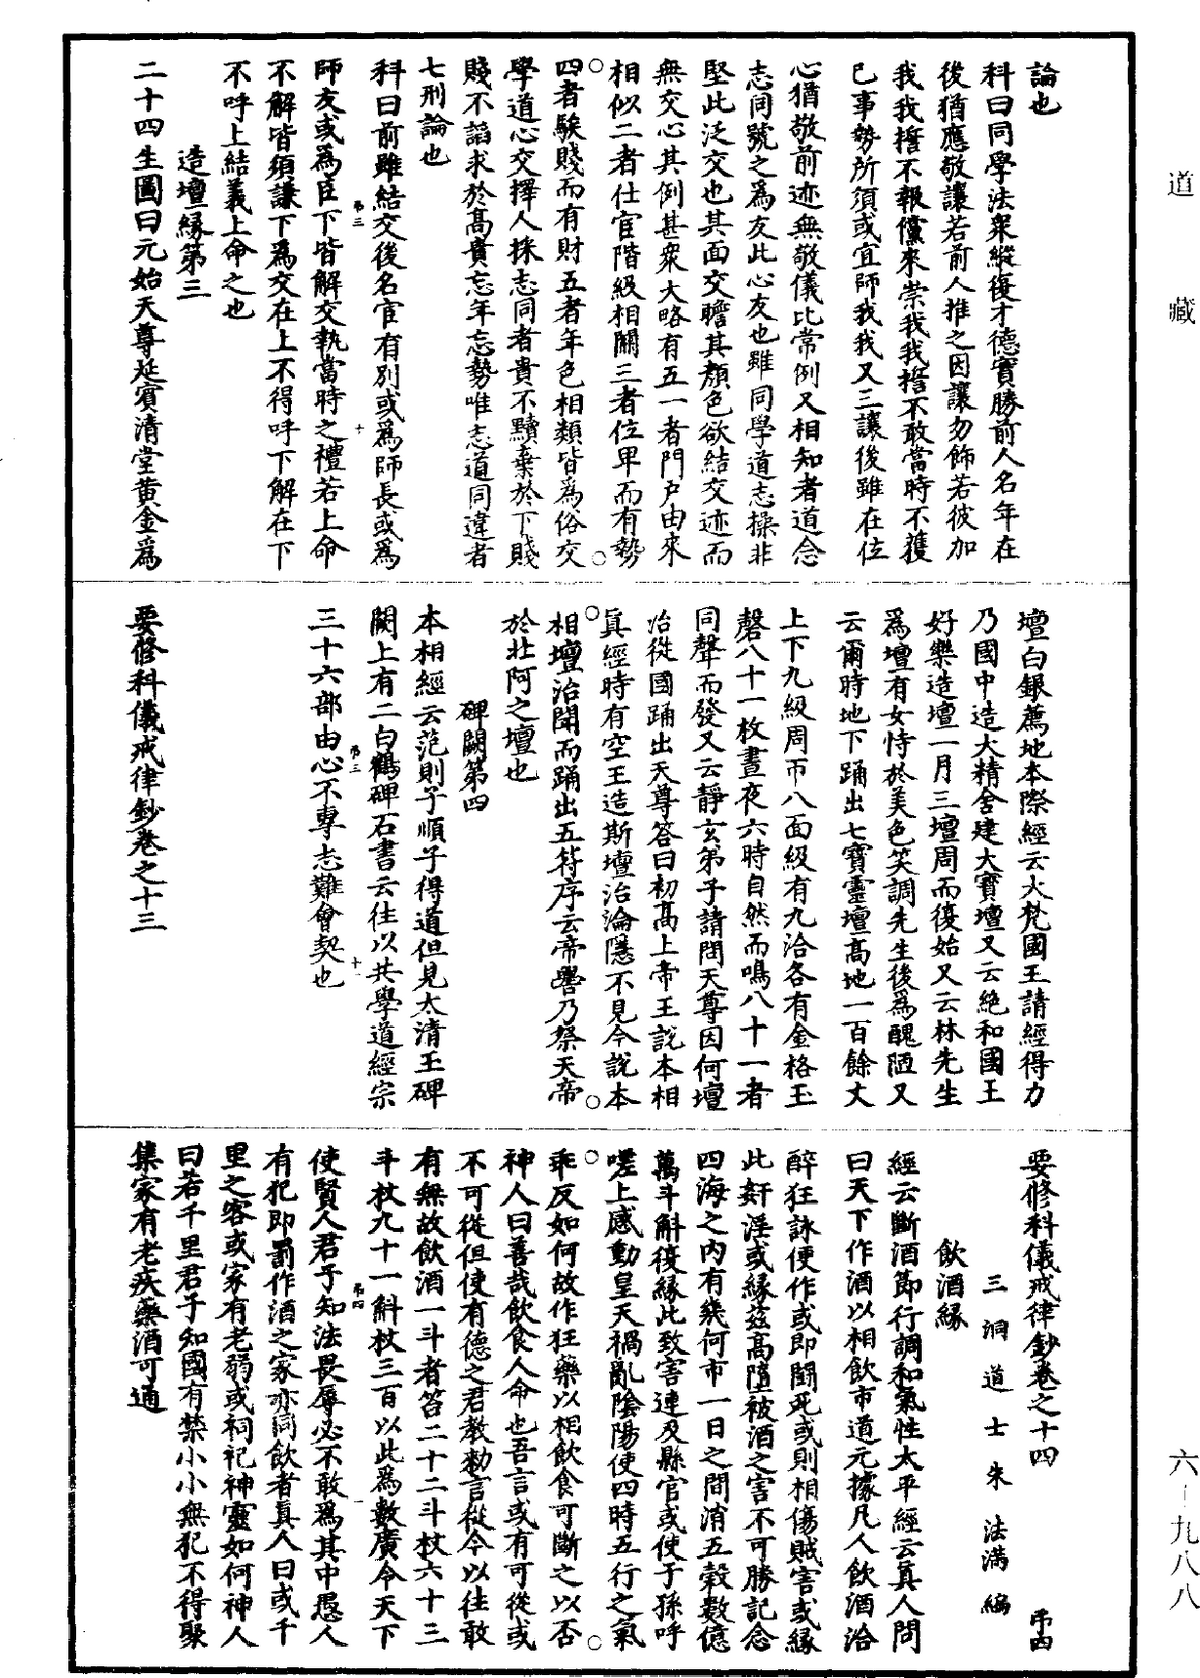 道藏
論也
科曰同學法衆縱復才德實勝前人名年在
後猶應敬讓若前人推之因讓勿飾若彼加
我我擔不報儻來崇我我擔不敢當時不獲
已事勢所須或宜師我我又三讓後雖在位
心猶敬前迹無敬儀比常例又相知者道念
志同號之爲友此心友也雖同學道志操非
堅此泛交也其面交瞻其顏色欲結交迹而
無交心其例甚衆大略有五一者門戶由來
相似二者仕官階級相關三者位卑而有勢
四者騃賤而有財五者年色相類皆爲俗交
學道心交擇人採志同者貴不黷棄於下賤
賤不謟求於髙貴忘年忘勢唯志道同違者
七刑論也
科曰前雖結交後名官有別或爲師長或爲
弔三
十
師友或爲臣下皆解交執當時之禮若上命
不解皆須謙下爲交在上不得呼下解在下
不呼上結義上命之也
造壇緣第三
二十四生圖曰元始天尊延賓清堂黃金爲
壇白銀薦地本際經云大梵國王請經得力
乃國中造大精舍建大寶壇又云絶和國王
好樂造壇一月三壇周而復始又云林先生
爲壇有女恃於美色笑調先生後爲醜陋又
云爾時地下踊出七寶靈壇髙地一百餘丈
上下九級周帀八面級有九洽各有金格玉
磬八十一枚晝夜六時自然而鳴八十一者
同聲而發又云靜玄弟子請問天尊因何壇
治從國踊出天尊答曰初髙上帝王說本相
眞經時有空王造斯壇治淪隱不見今說本
相壇治聞而踊出五符序云帝嚳乃祭天帝
於北阿之壇也
碑闕第四
本相經云范則子順子得道但見太清玉碑
闕上有二白鶴碑石書云往以共學道經宗
弔三
十
三十六部由心不專志難會契也
要修科儀戒律鈔卷之十三
要修科儀戒律鈔卷之十四 弔四
三洞道士朱法滿編
飲酒緣
經云斷酒節行調和氣性太平經云眞人問
曰天下作酒以相飲市道元據凡人飲酒洽
醉狂詠便作或即鬬死或則相傷賊害或緣
此奸淫或緣茲髙墮被酒之害不可勝記念
四海之內有幾何市一日之間消五穀數億
萬斗斛復緣此致害連及縣官或使子孫呼
嗟上感動皇天禍亂隂陽使四時五行之氣
乖反如何故作狂藥以相飲食可斷之以否
神人曰善哉飲食人命也吾言或有可從或
不可從但使有德之君教勑言從今以往敢
有無故飲酒一斗者笞二十二斗杖六十三
斗杖九十一斛杖三百以此爲數廣令天下
弔四
一
使賢人君子知法畏辱必不敢爲其中愚人
有犯即罰作酒之家亦同飲者眞人曰或千
里之客或家有老弱或祠祀神靈如何神人
曰若千里君子知國有禁小小無犯不得聚
集家有老疾藥酒可通
六-九八八